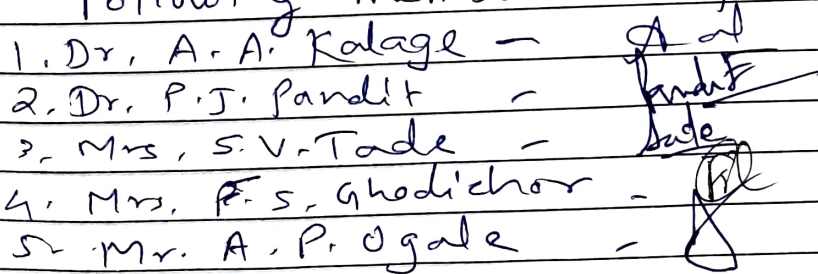 1. Dr. A. A. Kalage -
2. Dr. P. J. Pandit - Pandit
3. Mrs. S. V. Tade - Tade
4. Mrs. F. S. Ghodichor -
5. Mr. A. P. Ogale -